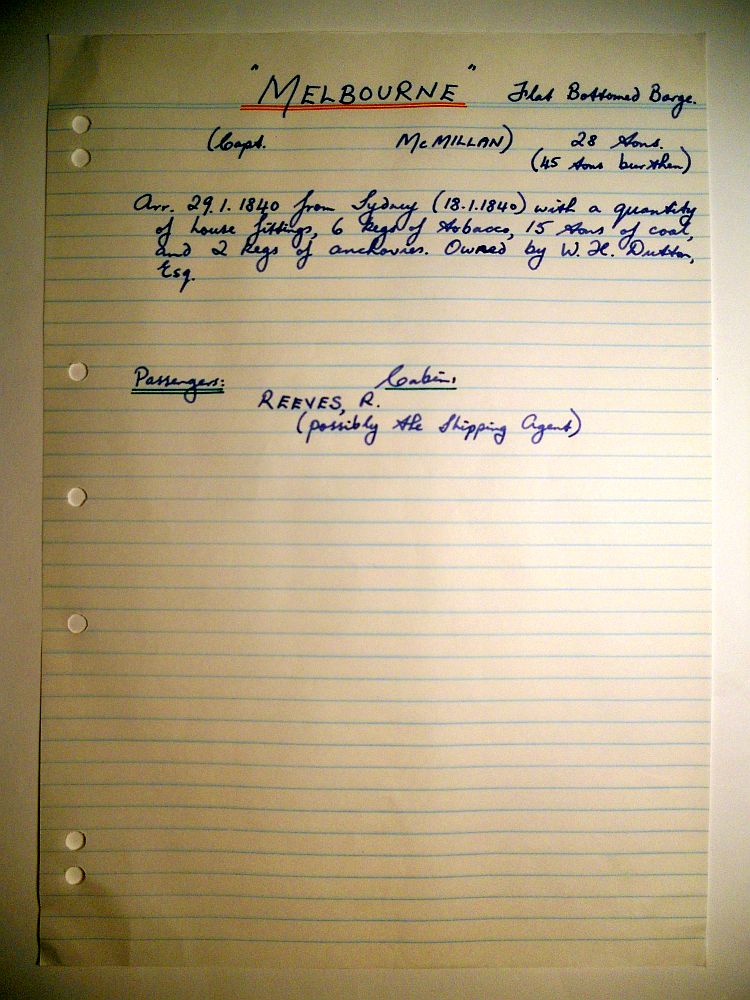 "MELBOURNE" Flat Bottomed Barge.
(Capt. McMILLAN) 28 tons.
(45 tons burthen)
Arr. 29.1.1840 from Sydney (18.1.1840) with a quantity
of house fittings, 6 kegs of tobacco, 15 tons of coal,
and 2 kegs of anchovies. Owned by W. H. Dutton,
Esq.
Passengers: Cabin.
REEVES, R.
(possibly the Shipping Agent)